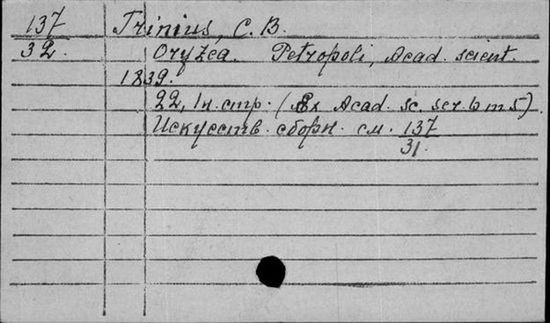 137 Trinius, C. B.
32. Oryzea. Petropoli, Acad. scient.
1839.
22, 1 н. стр. (Ex Acad. sc. ser. 6 m 5).
Искусств. сборн. см. 137
31.